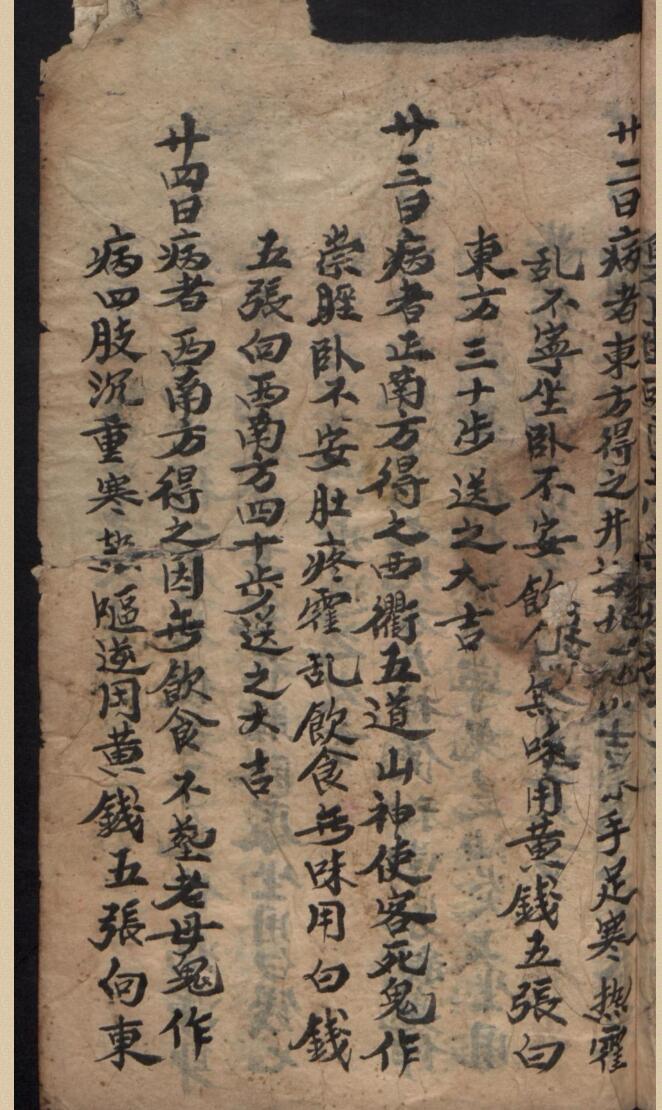 廿二日病者東方得之井手足寒熱霍
乱不寧坐卧不安飲無味用黄錢五張向
東方三十步送之大吉
廿三日病者正南方得之西衢五道山神使客死鬼作
祟睡卧不安肚疼霍乱飲食無味用白錢
五張向西南方四十步送之大吉
廿四日病者西南方得之因無飲食不墊老母鬼作
病四肢沉重寒熱嘔逆用黄錢五張向東